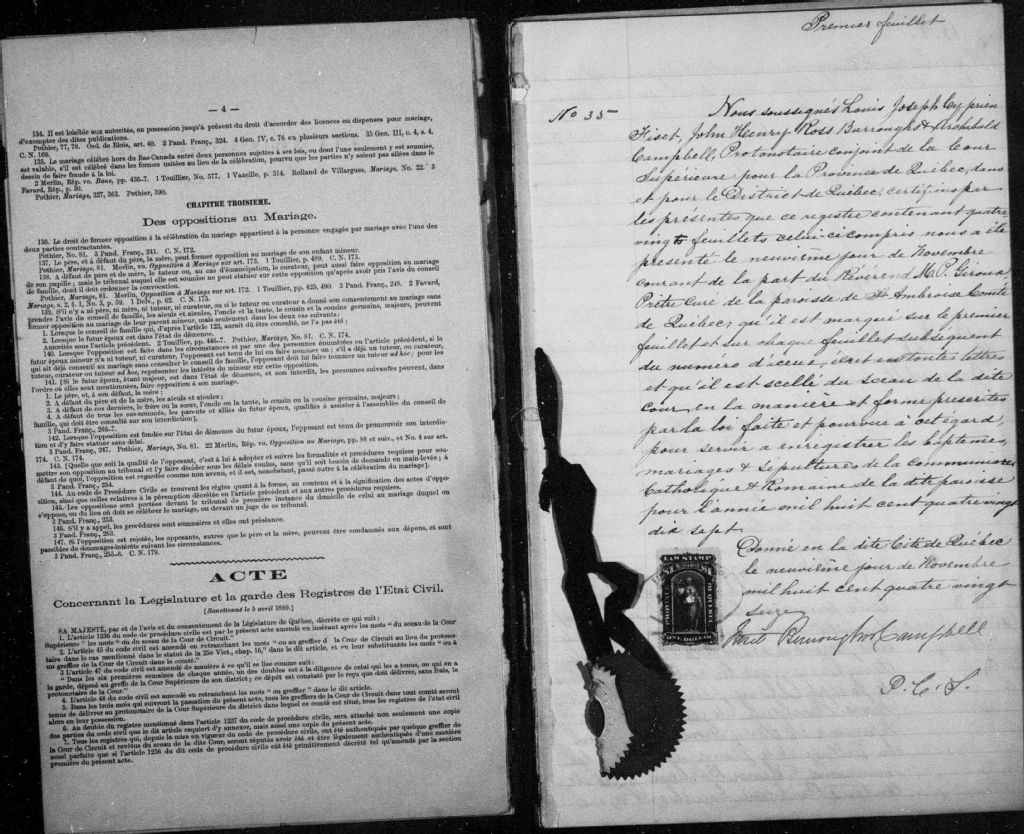 — 4 —
134. Il est loisible aux autorités, en possession jusqu'à présent du droit d'accorder des licences ou dispenses pour mariage,
d'exempter des dites publications.
Pothier, 77, 78. Ord. de Blois, art. 40. 2 Pand. Franç., 324. 4 Geo. IV, c. 76 en plusieurs sections. 35 Geo. III, c. 4, s. 4.
C. N. 169.
135. Le mariage célébré hors du Bas-Canada entre deux personnes sujettes à ses lois, ou dont l'une seulement y est soumise,
est valable, s'il est célébré dans les formes usitées au lieu de la célébration, pourvu que les parties n'y soient pas allées dans le
dessin de faire fraude à la loi.
2 Merlin, Rép. vo. Bans, pp. 436-7. 1 Touillier, No. 577. 1 Vazeille, p. 314. Rolland de Villargues, Mariage, No. 22. 3
Favard, Rép., p. 30.
Pothier, Mariage, 327, 363. Pothier, 390.
CHAPITRE TROISIEME.
Des oppositions au Mariage.
136. Le droit de former opposition à la célébration du mariage appartient à la personne engagée par mariage avec l'une des
deux parties contractantes.
Pothier, No. 81. 3 Pand. Franç., 241. C. N. 172.
137. Le père, et à défaut du père, la mère, peut former opposition au mariage de son enfant mineur.
Pothier, Mariage, 81. Merlin, vo. Opposition à Mariage sur art. 173. 1 Touillier, p. 489. C. N. 173.
138. A défaut de père et de mère, le tuteur ou, au cas d'émancipation, le curateur, peut aussi faire opposition au mariage
de son pupille; mais le tribunal auquel elle est soumise ne peut statuer sur cette opposition qu'après avoir pris l'avis du conseil
de famille, dont il doit ordonner la convocation.
Pothier, Mariage, 81. Merlin, Opposition à Mariage sur art. 172. 1 Touillier, pp. 425, 490. 3 Pand. Franç., 248. 2 Favard,
Mariage, s. 2, § 1, No. 3, p. 59. 1 Delv., p. 62. C. N. 175.
139. S'il n'y a ni père, ni mère, ni tuteur, ni curateur, ou si le tuteur ou curateur a donné son consentement au mariage sans
prendre l'avis du conseil de famille, les aïeuls et aïeules, l'oncle et la tante, le cousin et la cousine germains, majeurs, peuvent
former opposition au mariage de leur parent mineur, mais seulement dans les deux cas suivants:
1. Lorsque le conseil de famille qui, d'après l'article 122, aurait dû être consulté, ne l'a pas été;
2. Lorsque le futur époux est dans l'état de démence.
Autorités sous l'article précédent. 2 Touillier, pp. 446-7. Pothier, Mariage, No. 81. C. N. 174.
140. Lorsque l'opposition est faite dans les circonstances et par une des personnes énumérées en l'article précédent, si le
futur époux mineur n'a ni tuteur, ni curateur, l'opposant est tenu de lui en faire nommer un; s'il a déjà un tuteur, ou curateur,
qui ait déjà consenti au mariage sans consulter le conseil de famille, l'opposant doit lui faire nommer un tuteur ad hoc; pour les
tuteur, curateur ou tuteur ad hoc, représenter les intérêts du mineur sur cette opposition.
141. [Si le futur époux, étant majeur, est dans l'état de démence, et non interdit, les personnes suivantes peuvent, dans
l'ordre où elles sont mentionnées, faire opposition à son mariage.
1. Le père, et, à son défaut, la mère;
2. A défaut du père et de la mère, les aïeuls et aïeules;
3. A défaut de ces derniers, le frère ou la sœur, l'oncle ou la tante, le cousin ou la cousine germains, majeurs;
4. A défaut de tous les sus-nommés, les parents et alliés du futur époux, qualifiés à assister à l'assemblée du conseil de
famille, qui doit être consulté sur son interdiction].
3 Pand. Franç., 246-7.
142. Lorsque l'opposition est fondée sur l'état de démence du futur époux, l'opposant est tenu de promouvoir son interdic-
tion et d'y faire statuer sans délai.
3 Pand. Franç., 247. Pothier, Mariage, No. 81. 22 Merlin, Rép. vo. Opposition au Mariage, pp. 88 et suiv., et No. 4 sur art.
174. C. N. 174.
143. [Quelle que soit la qualité de l'opposant, c'est à lui à adopter et suivre les formalités et procédures requises pour sou-
mettre son opposition au tribunal et l'y faire décider sous les délais voulus, sans qu'il soit besoin de demande en main-levée; à
défaut de quoi, l'opposition est regardée comme non avenue, et il est, nonobstant, passé outre à la célébration du mariage].
3 Pand. Franç., 254.
144. Au code de Procédure Civile se trouvent les règles quant à la forme, au contenu et à la signification des actes d'oppo-
sition, ainsi que celles relatives à la péremption décrétée en l'article précédent et aux autres procédures requises.
145. Les oppositions sont portées devant le tribunal de première instance du domicile de celui au mariage duquel on
s'oppose, ou du lieu où doit se célébrer le mariage, ou devant un juge de ce tribunal.
3 Pand. Franç., 253.
146. S'il y a appel, les procédures sont sommaires et elles ont préséance.
3 Pand. Franç., 253.
147. Si l'opposition est rejetée, les opposants, autres que le père et la mère, peuvent être condamnés aux dépens, et sont
passibles de dommages-intérêts suivant les circonstances.
3 Pand. Franç., 255-6. C. N. 179.
ACTE
Concernant la Législature et la garde des Registres de l'Etat Civil.
[Sanctionné le 5 avril 1869.]
SA MAJESTÉ, par et de l'avis et du consentement de la Législature de Québec, décrète ce qui suit:
1. L'article 1236 du code de procédure civile est par le présent acte amendé en insérant après les mots "du sceau de la Cour
Supérieure" les mots "ou du sceau de la Cour de Circuit."
2. L'article 45 du code civil est amendé en retranchant les mots "ou au greffier d la Cour de Circuit au lieu du protono-
taire dans le cas mentionné dans le statut de la 25e Vict., chap. 16," dans le dit article, et en leur substituants les mots "ou à
un greffier de la Cour de Circuit dans le comté."
3. L'article 47 du code civil est amendé de manière à ce qu'il se lise comme suit:
"Dans les six premières semaines de chaque année, un des doubles est à la diligence de celui qui les a tenus, ou qui en a
la garde, déposé au greffe de la Cour Supérieure de son district; ce dépôt est constaté par le reçu que doit délivrer, sans frais, le
protonotaire de la Cour."
4. L'article 48 du code civil est amendé en retranchant les mots "ou greffier" dans le dit article.
5. Dans les trois mois qui suivront la passation du présent acte, tous les greffiers de la Cour de Circuit dans tout comté seront
tenus de délivrer au protonotaire de la Cour Supérieure du district dans lequel ce comté est situé, tous les registres de l'état civil
alors en leur possession.
6. Au double du registre mentionné dans l'article 1237 du code de procédure civile, sera attaché non seulement une copie
des parties du code civil que le dit article requiert d'y annexer, mais aussi une copie du présent acte.
7. Tous les registres qui, depuis la mise en vigueur du code de procédure civile, ont été authentiqués par quelque greffier de
la Cour de Circuit et revêtus du sceau de la dite Cour, seront réputés avoir été et être légalement authentiqués d'une manière
aussi parfaite que si l'article 1236 du dit code de procédure civile eût été primitivement décrété tel qu'amendé par la section
première du présent acte.
Premier feuillet
No 35
Nous soussignés Louis Joseph Cyprien
Fiset, John Henry Ross Burroughs & Archibald
Campbell, Protonotaire conjoint de la Cour
Supérieure pour la Province de Québec, dans
et pour le District de Québec, certifions par
les présentes que ce registre contenant quatre
vingt feuillets celui ci compris nous a été
présenté le neuvième jour de Novembre
courant de la part du Révérend M. P. Giroux
Prêtre Curé de la paroisse de St Ambroise Comté
de Québec; qu'il est marqué sur le premier
feuillet et sur chaque feuillet subséquent
du numéro d'icelui, écrit en toutes lettres
et qu'il est scellé du sceau de la dite
cour, en la manière et forme prescrites
par la loi faite et pourvue à cet égard,
pour servir à enregistrer les baptêmes,
mariages & sépultures de la communion
Catholique & Romaine de la dte paroisse
pour l'année mil huit cent quatre vingt
dix sept
Donné en la dite Cité de Québec
le neuvième jour de Novembre
mil huit cent quatre vingt
seize
LAW STAMP
PROVINCE OF QUEBEC
ONE DOLLAR
Fiset Burroughs Campbell
P. C. S.